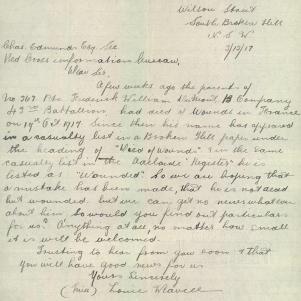 Wilson Street
South Broken Hill
N. S. W
3/12/17
Chas. Edmunds Esq. Sec
Red Cross information Bureau,
Dear Sir,
A few weeks ago the parents of
No 367 Pte. Frederick William B Company
43rd Battalion, had died of Wounds in France
on 19th Oct 1917. Since then his name has appeared
in a casualty list in a Broken Hill paper under
the heading of "Died of wounds" & in the same
casualty list in the Adelaide "Register" he is
listed as "Wounded". So we are hoping that
a mistake has been made, that he is not dead
but wounded. but we can get no news whatever
about him. So would you find out particulars
for us? Anything at all, no matter how small
it is will be welcomed.
Trusting to hear from you soon & that
you will have good news for us
Yours Sincerely
(Miss) Louie